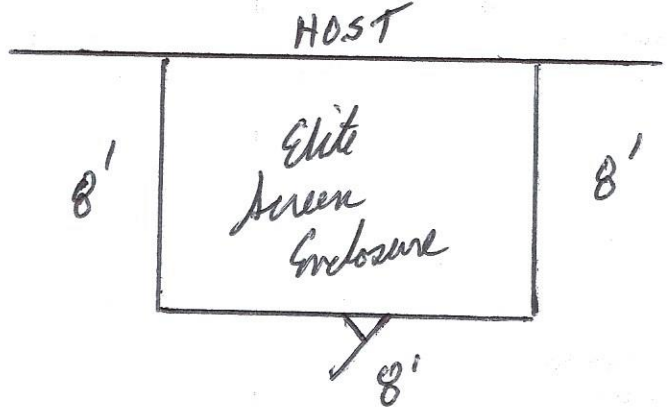 HOST
8'
Elite
Screen
Enclosure
8'
8'